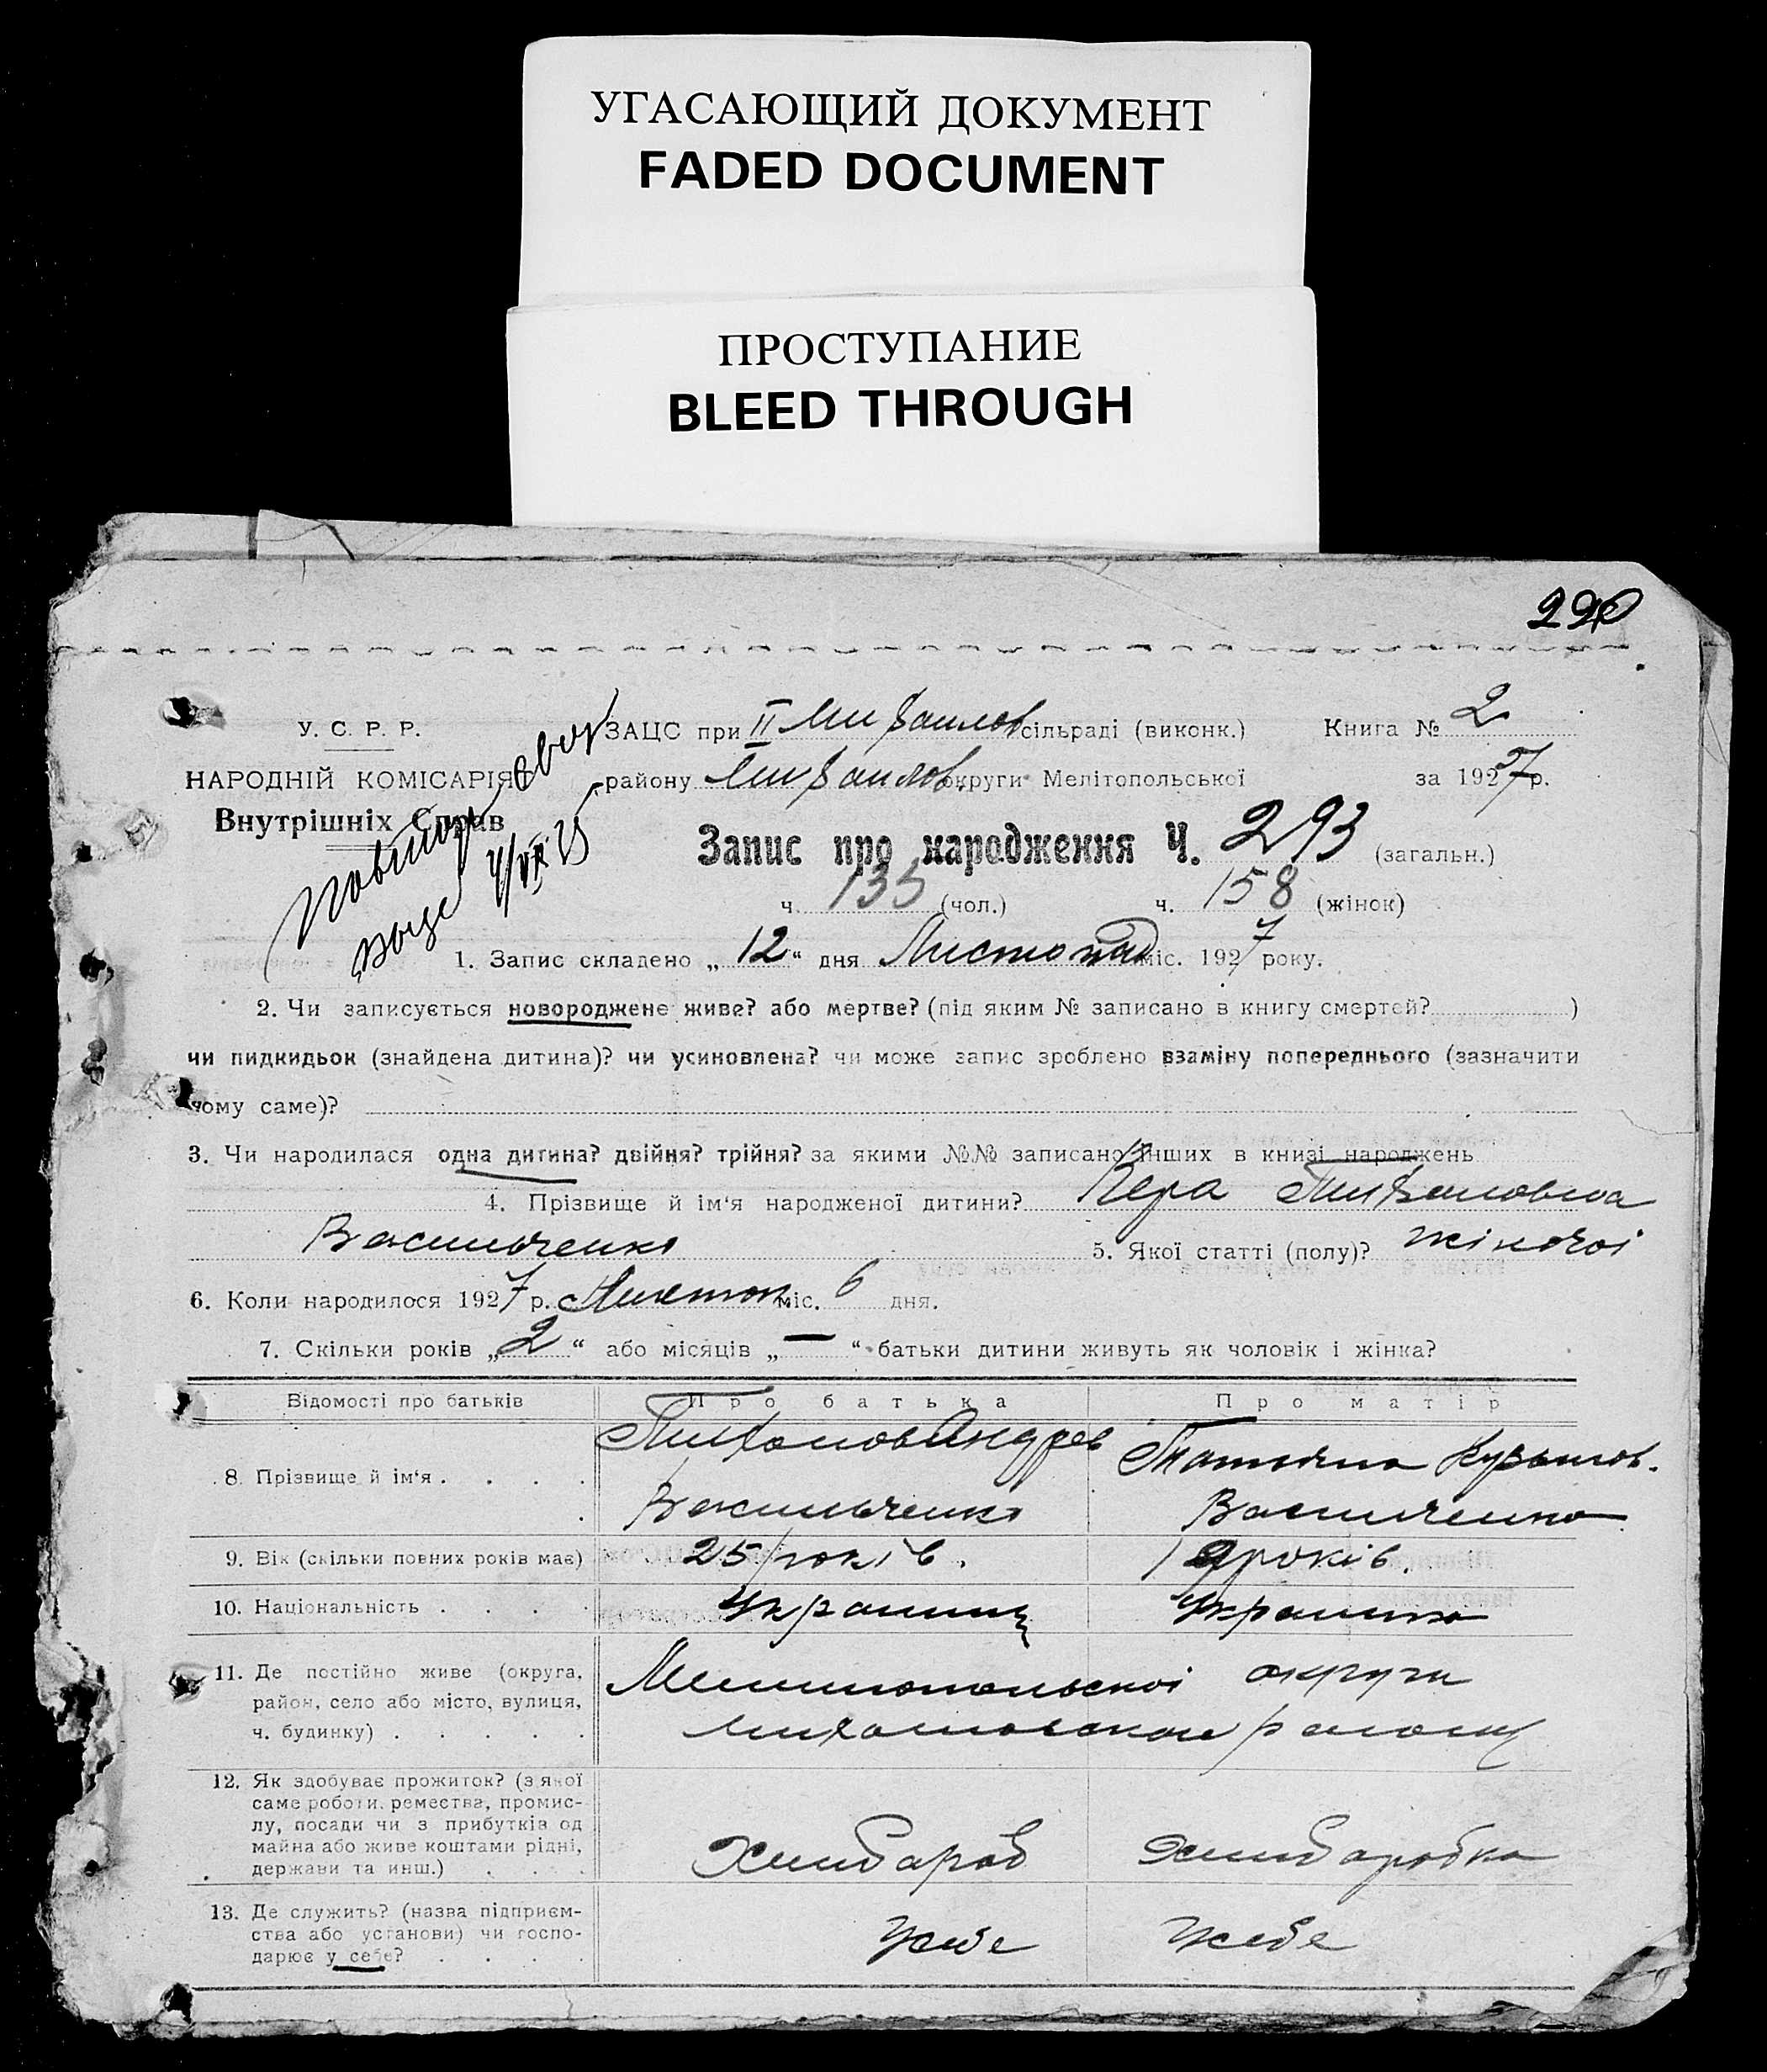 УГАСАЮЩИЙ ДОКУМЕНТ
FADED DOCUMENT
ПРОСТУПАНИЕ
BLEED THROUGH
220
У. С. Р. Р.
НАРОДНІЙ КОМІСАРІЯТ
Внутрішніх Справ
ЗАЦС при II Михайлов сільраді (виконк.) Книга № 2
району Михайлов. округи Мелітопольської за 1927 р.
Запис про народження Ч. 293 (загальн.)
ч. 135 (чол.) ч. 158 (жінок)
1. Запис складено „12“ дня Листопад міс. 1927 року.
2. Чи записується новороджене живе? або мертве? (під яким № записано в книгу смертей? )
чи пидкидьок (знайдена дитина)? чи усиновлена? чи може запис зроблено взаміну попереднього (зазначити
чому саме)?
3. Чи народилася одна дитина? двійня? трійня? за якими №№ записано інших в книзі народжень
4. Прізвище й ім‘я народженої дитини? Вера
Васильченко 5. Якої статті (полу)? жіночої
6. Коли народилося 1927 р. Листоп. міс. 6 дня.
7. Скільки років „2“ або місяців „—“ батьки дитини живуть як чоловік і жінка?
Відомості про батьків Про батька Про матір
8. Прізвище й ім‘я . . . . Андреев Татьяна Кузьмов.
Васильченко Васильченко
9. Вік (скільки повних років має) 25 років. 19 років.
10. Національність . . . . Украинец Украинка
11. Де постійно живе (округа, район, село або місто, вулиця, ч. будинку) . . . . . Мелитопольскої округи
Михайловском району
12. Як здобуває прожиток? (з якої саме роботи, ремества, промислу, посади чи з прибутків од майна або живе коштами рідні, держави та инш.) . . . . Хлибороб Хлиборобка
13. Де служить? (назва підприємства або установи) чи господарює у себе? . . . . У себе У себе